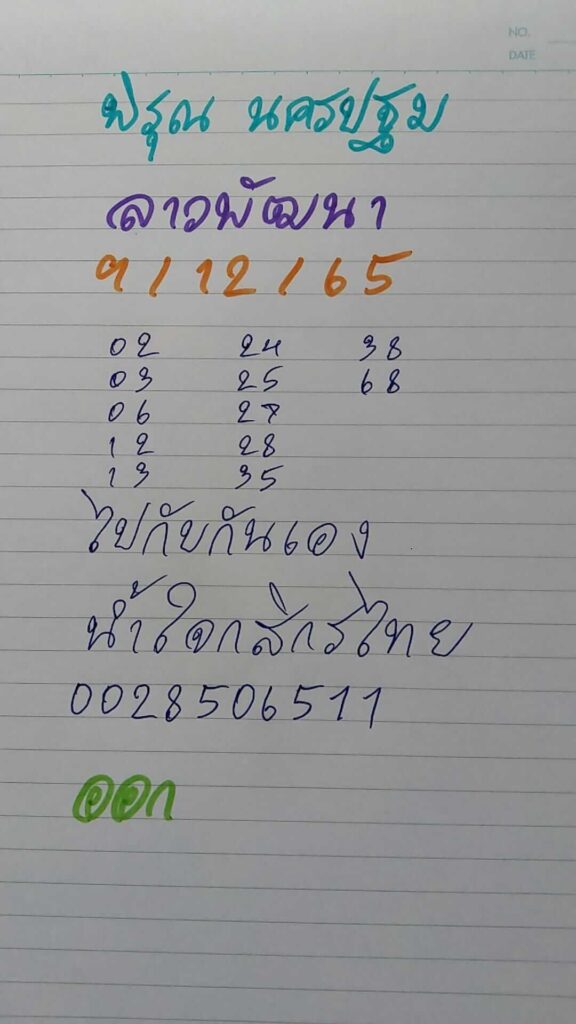 NO.
DATE
พิรุณ นครปฐม
ลาวพัฒนา
9 / 12 / 65
02 24 38
03 25 68
06 27
12 28
13 35
ไปกับกันเอง
น้ำใจกสิกรไทย
0028506511
ออก